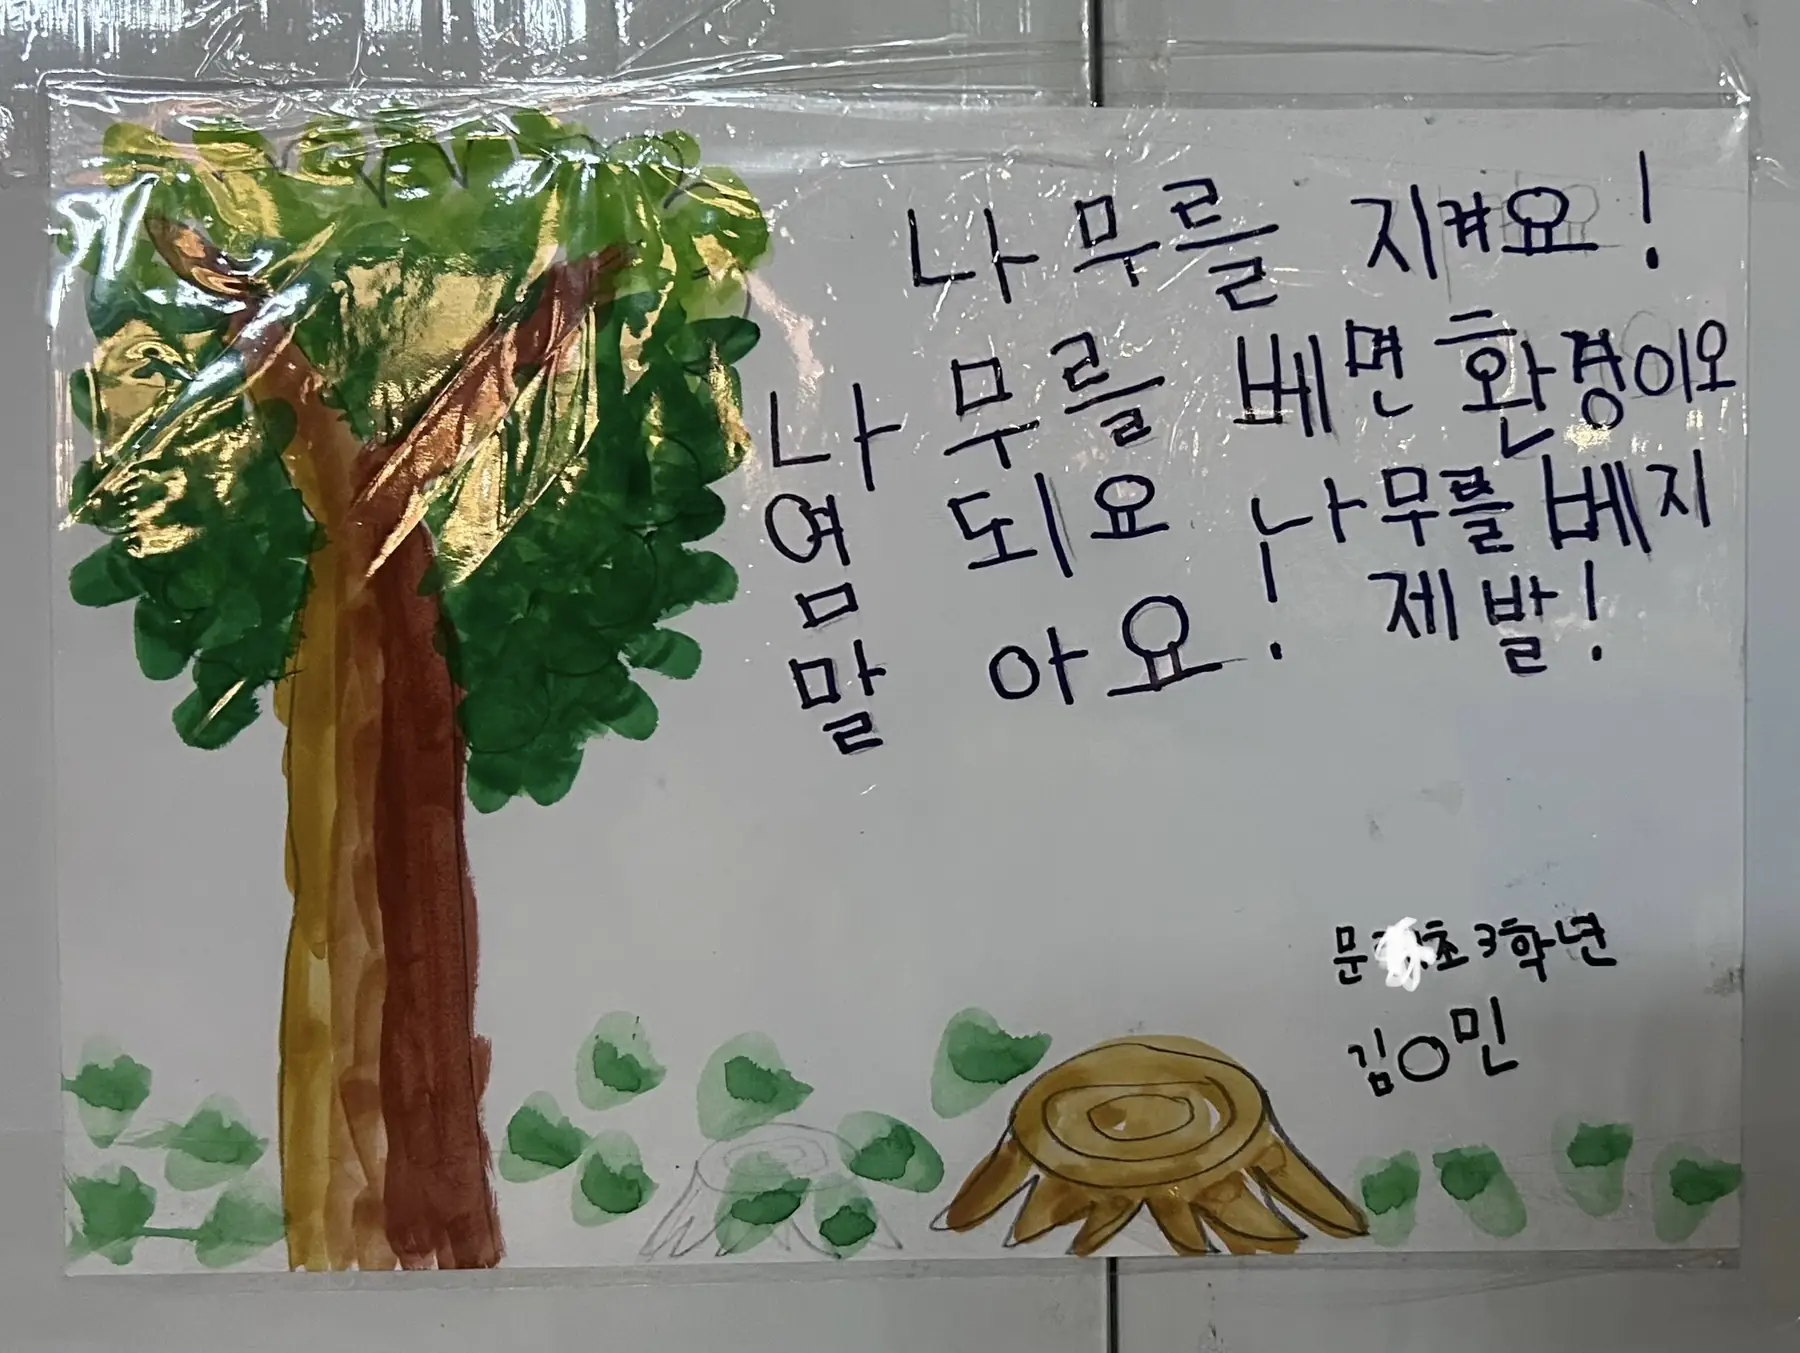 나무를 지켜요!
나무를 베면 환경이오
염 되요 나무를 베지
말아요! 제발!
문 초 3학년
김○민